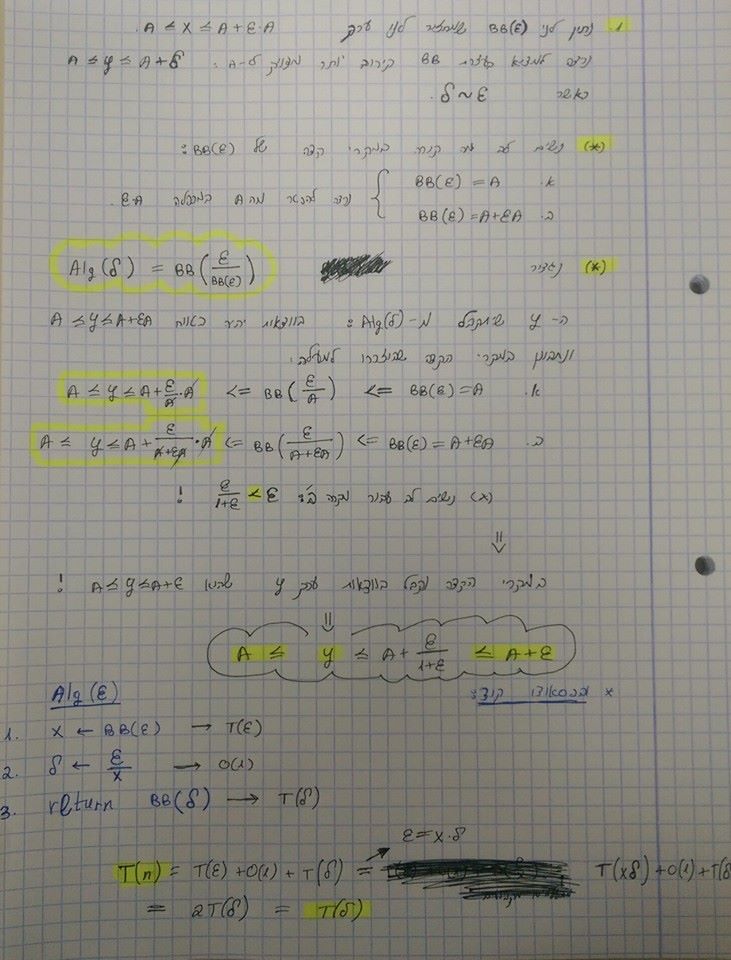 1. נתון לנו BB(ε) שמחזיר לנו ערך A ≤ x ≤ A+ε·A.
נרצה למצוא בעזרת BB קירוב יותר מצומצם ל-A: A ≤ y ≤ A+δ
כאשר δ~ε.
(*) נשים לב מה קורה במקרי קצה של BB(ε):
א. BB(ε) = A
ב. BB(ε) = A+εA
נרצה להפטר מה A במכפלה ε·A.
(*) נגדיר Alg(δ) = BB(ε/BB(ε))
ה-y שיתקבל מ-Alg(δ): בוודאות יהיה בטווח A ≤ y ≤ A+εA
ונתבונן במקרי הקצה שהוזכרו למעלה:
א. BB(ε) = A => BB(ε/A) => A ≤ y ≤ A+ε/A·A
ב. BB(ε) = A+εA => BB(ε/A+εA) => A ≤ y ≤ A+ε/A+εA·A
(*) נשים לב עבור מקרה ב': ε/1+ε < ε !
⇓
במקרי הקצה נקבל בוודאות ערך y שהוא A ≤ y ≤ A+ε !
⇓
A ≤ y ≤ A+ε/1+ε ≤ A+ε
* בפסאודו קוד:
Alg(ε)
1. x ← BB(ε) → T(ε)
2. δ ← ε/x → O(1)
3. return BB(δ) → T(δ)
ε=x·δ
T(n) = T(ε)+O(1)+T(δ) = T(xδ)+O(1)+T(δ
= 2T(δ) = T(δ)